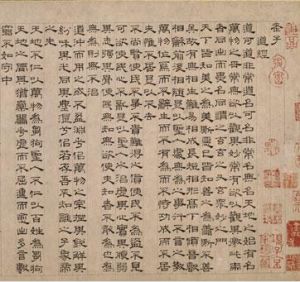 老子
道經
道可道非常道名可名非常名無名天地之始有名
萬物之母常無欲以觀其妙常有欲以觀其徼此兩
者同出而異名同謂之玄玄之又玄眾妙之門
天下皆知美之為美斯惡已皆知善之為善斯不善
已故有無相生難易相成長短相形高下相傾音聲
相和前後相隨是以聖人處無為之事行不言之教
萬物作而不辭生而不有為而不恃功成而不居
夫唯不居是以不去
不尚賢使民不爭不貴難得之貨使民不為盜不見
可欲使心不亂是以聖人之治虛其心實其腹弱
其志強其骨常使民無知無欲使夫知者不敢為也
為無為則無不治
道沖而用之或不盈淵兮似萬物之宗挫其銳解其
紛和其光同其塵湛兮似若存吾不知誰之子象帝
之先
天地不仁以萬物為芻狗聖人不仁以百姓為芻狗
天地之間其猶橐籥乎虛而不屈動而愈出多言數
窮不如守中